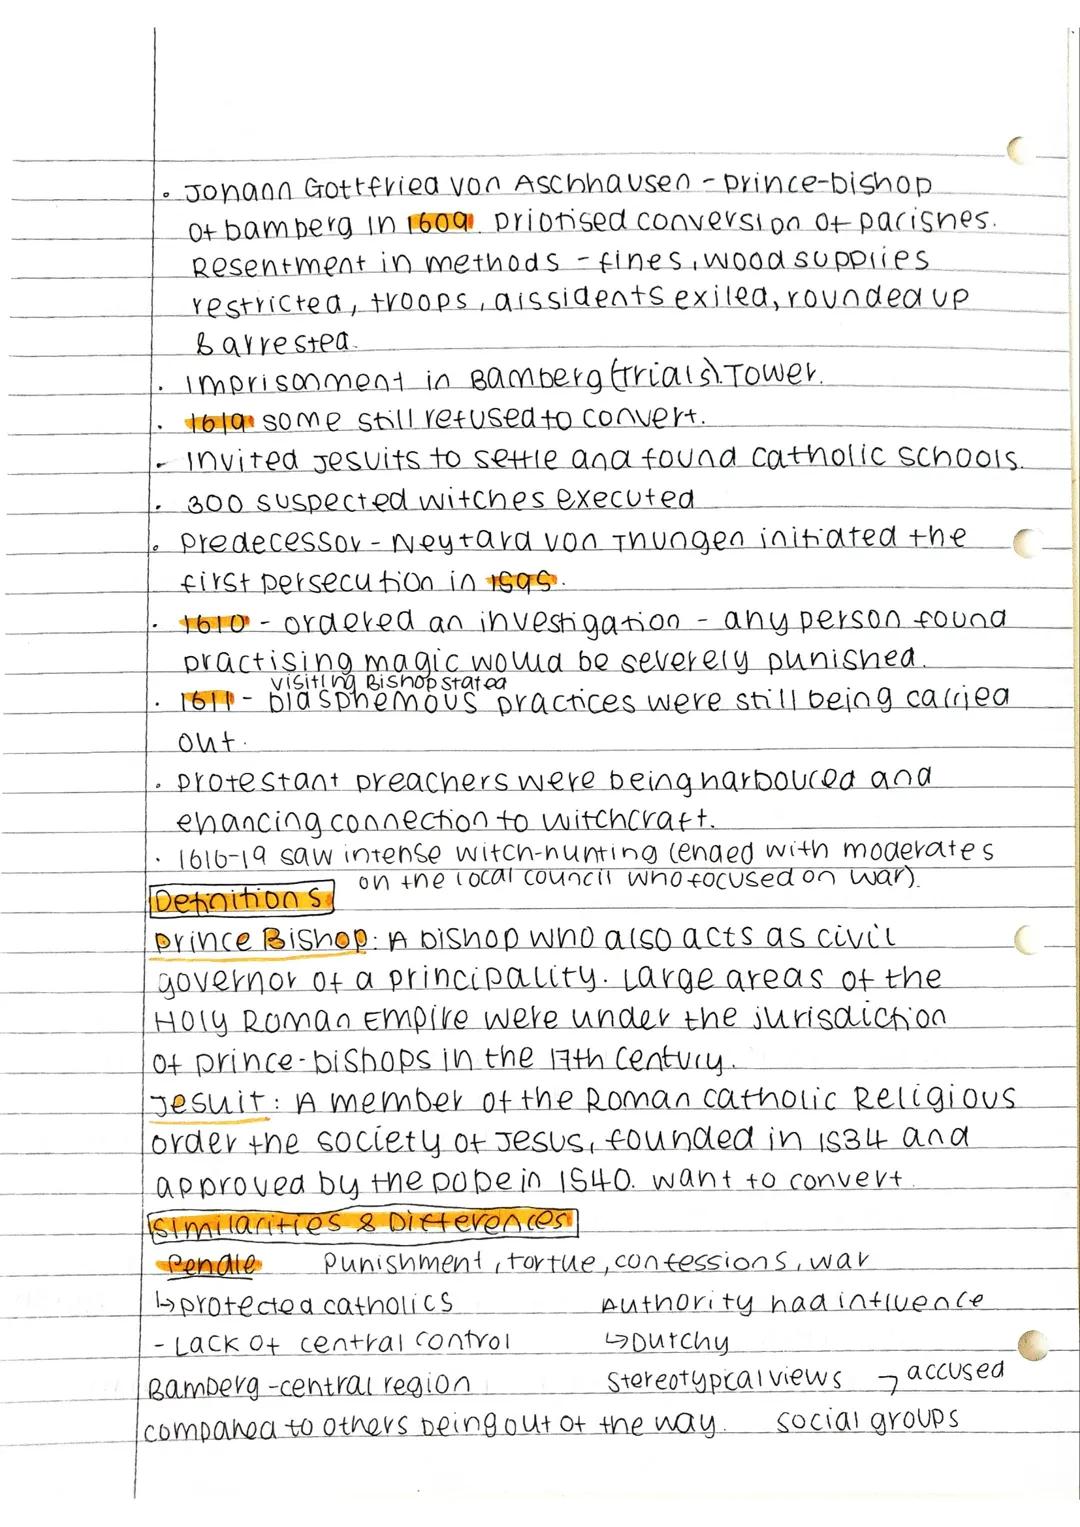 • Johann Gottfried von Aschhausen - prince-bishop
of bamberg in 1609. priotised conversion of parishes.
Resentment in methods - fines, wood supplies
restricted, troops, dissidents exiled, rounded up
& arrested.
• Imprisonment in Bamberg (trials). Tower.
• 1619 some still refused to convert.
- Invited Jesuits to settle and found catholic schools.
• 300 suspected witches executed
• predecessor - Neytard von Thungen initiated the
first persecution in 1595.
• 1610 - ordered an investigation - any person found
practising magic would be severely punished.
visiting Bishop stated
• 1611 - blasphemous practices were still being carried
out.
• protestant preachers were being harboured and
enhancing connection to witchcraft.
• 1616-19 saw intense witch-hunting (ended with moderates
on the local council who focused on war).
Definitions
prince Bishop: A bishop who also acts as civil
governor of a principality. Large areas of the
Holy Roman Empire were under the jurisdiction
of prince-bishops in the 17th century.
Jesuit: A member of the Roman catholic Religious
order the society of Jesus, founded in 1534 and
approved by the pope in 1540. want to convert.
Similarities & Differences
Pendle Punishment, tortue, confessions, war
↳ protected catholics Authority had influence
- Lack of central control ↳ Dutchy
Bamberg - central region Stereotypical views → accused
compared to others being out of the way. social groups